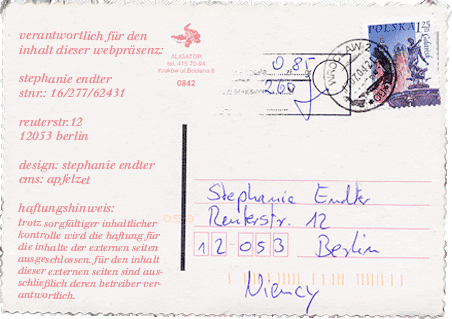 verantwortlich für den
inhalt dieser webpräsenz:
stephanie endter
stnr.: 16/277/62431
reuterstr.12
12053 berlin
design: stephanie endter
cms: apfelzet
haftungshinweis:
trotz sorgfältiger inhaltlicher
kontrolle wird die haftung für
die inhalte der externen seiten
ausgeschlossen. für den inhalt
dieser externen seiten sind aus-
schließlich deren betreiber ver-
antwortlich.
ALIGATOR
tel. 415 70 94
0842
0,85
2,60
WROCŁAW 2
POLSKA 1,25
Stephanie Endter
Reuterstr. 12
12053 Berlin
Niemcy